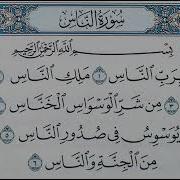 سُورَةُ النَّاسِ
بِسْمِ اللَّهِ الرَّحْمَٰنِ الرَّحِيمِ
بِرَبِّ النَّاسِ ١ مَلِكِ النَّاسِ
٣ مِن شَرِّ الْوَسْوَاسِ الْخَنَّاسِ ٤
يُوَسْوِسُ فِي صُدُورِ النَّاسِ ٥
مِنَ الْجِنَّةِ وَالنَّاسِ ٦